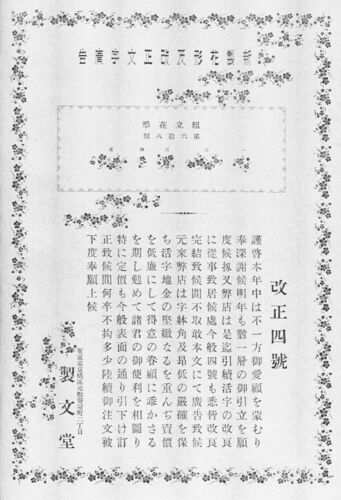 新製花形及改正文字廣告
組立花形
第六拾八號
改正四號
謹啓本年中は不一方御愛顧を蒙むり
奉深謝候明年も猶一層の御引立を願
度候扨又弊店は是迄引續活字の改良
に從事致居候處今般四號も悉皆改良
完結致候間不取敢本文にて廣告致候
元來弊店は字躰角及昂低の嚴確を保
ち活字地金の堅緻なるを重んぢ賣價
を低廉にして得意の眷顧に乖かさる
を期し勉めて諸君の御便利を相圖り
特に定價も今般表面の通り引下け訂
正致候間何卒不拘多少陸續御注文被
下度奉願上候
東京市京橋區元數寄屋町二丁目
製文堂